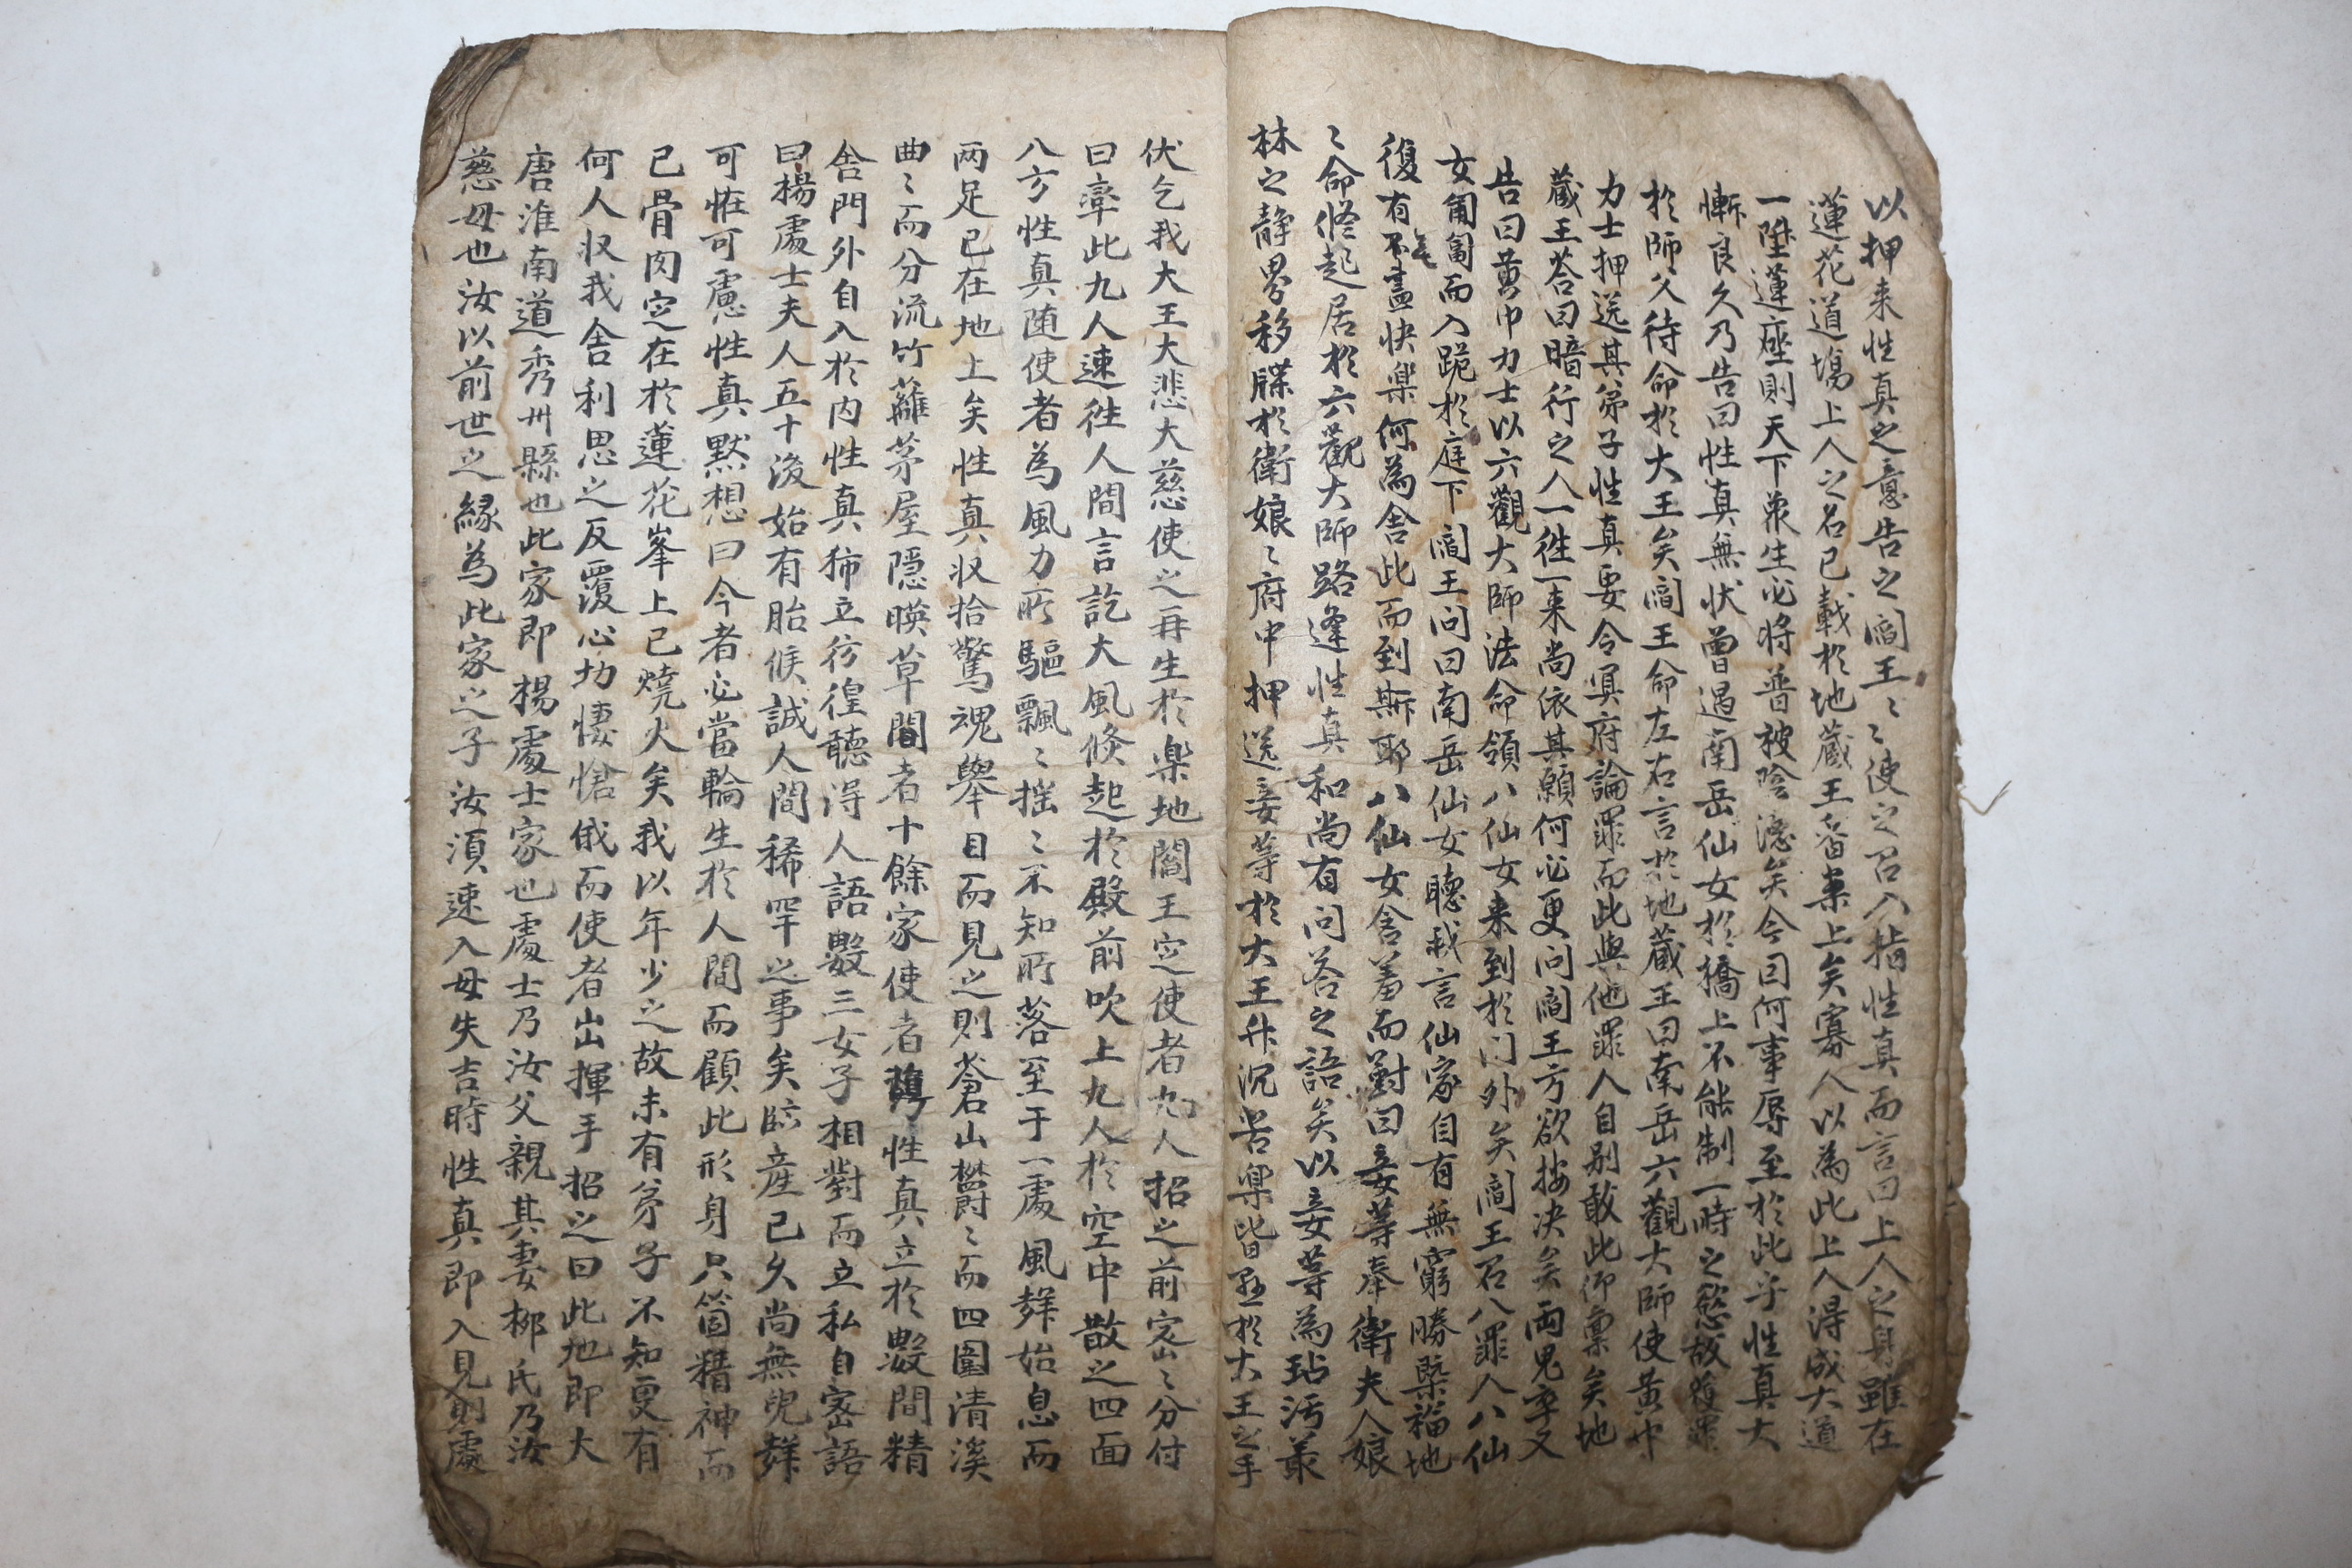 以押来性真之意告之閻王〻使之召入指性真而言曰上人之身雖在
蓮花道塲上人之名已載於地蔵王香案上矣寡人以為此上人得成大道
一陞蓮座則天下衆生必将普被陰德矣今日何事辱至於此乎性真大
慚良久乃告曰性真無状曽遇南岳仙女於橋上不能制一時之慾故獲罪
於師父待命於大王矣閻王命左右言於地蔵王曰南岳六觀大師使黄巾
力士押送其弟子性真要令冥府論罪而此與他罪人自别敢此仰禀矣地
蔵王荅曰暗行之人一徃一来尚依其願何必更问閻王方欲按决矣両鬼卒又
告曰黄巾力士以六觀大師法命領八仙女来到於门外矣閻王召八罪人八仙
女匍匐而入跪於庭下閻王问曰南岳仙女聽我言仙家自有無窮勝槩福地
復有不盡快楽何為舍此而到斯耶八仙女含羞而對曰妾等奉衛夫人娘
〻命修起居於六觀大師路逢性真和尚有问荅之語矣以妾等為玷汚叢
林之静界移牒於衛娘〻府中押送妾等於大王升沉苦楽皆懸於大王之手
伏乞我大王大悲大慈使之再生於楽地閻王定使者九人招之前密〻分付
曰率此九人速徃人間言訖大風倏起於殿前吹上九人於空中散之四面
八方性真随使者為風力所驅飄〻揺〻不知所落至于一處風声始息而
两足已在地上矣性真収拾驚魂舉目而見之則蒼山欝〻而四圍清溪
曲〻而分流竹籬茅屋隠暎草間者十餘家使者 性真立於數間精
舍門外自入於内性真獨立彷徨聽得人語數三女子相對而立私自密語
曰楊處士夫人五十後始有胎候誠人間稀罕之事矣臨産已久尚無兒声
可恠可慮性真黙想曰今者必當輪生於人間而顧此形身只箇精神而
已骨肉定在於蓮花峯上已燒火矣我以年少之故未有弟子不知更有
何人収我舍利思之反覆心切悽愴俄而使者出揮手招之曰此地即大
唐淮南道秀州縣也此家即楊處士家也處士乃汝父親其妻柳氏乃汝
慈母也汝以前世之緣為此家之子汝須速入毋失吉時性真即入見則處